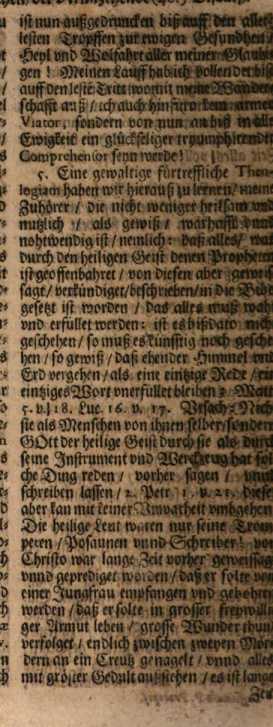 ist nun außgedruncken biß auff den aller-
lesten Tropffen zur ewigen Gesundheit/
Heyl vnd Wolfahrt aller meiner Glaubi-
gen! Meinen Lauff hab ich vollendet biß
auff den lesten Tritt womit meine Wander-
schafft auß/ ich auch hinfüro kein armer
Viator, sondern von nun an biß in alle
Ewigkeit ein glückseliger tryumphirender
Comprehensor seyn werde!
5. Eine gewaltige fürtreffliche Theo-
logiam haben wir hierauß zu lernen/ meine
Zuhörer/ die nicht weniger heilsam vnd
nutzlich/ als gewiß/ warhafft vnd
nohtwendig ist/ nemlich: daß alles/ was
durch den heiligen Geist denen Propheten
ist geoffenbahret/ von diesen aber geweis-
sagt/ verkündiget/ beschrieben/ in die Bibel
gesetzt ist worden/ das alles muß wahr
vnd erfüllet werden: ist es bißdato nicht
geschehen/ so muß es künfftig noch gesche-
hen/ so gewiß/ daß ehender Himmel vnd
Erd vergehen/ als eine eintzige Rede/ ein
eintziges Wort vnerfüllet bleiben: Matt.
5. v. 18. Luc. 16. v. 17. Vrsach: Nicht
sie als Menschen von ihnen selber/ sondern
GOtt der heilige Geist durch sie als durch
seine Instrument vnd Werckzeug hat sol-
che Ding reden/ vorher sagen/ vnd
schreiben lassen/ 2. Petr. 1. v. 21. dieser
aber kan mit keiner Vnwarheit vmbgehen.
Die heilige Leut waren nur seine Trom-
peten/ Posaunen vnnd Schreiber! von
Christo war lange Zeit vorher geweissagt
vnnd geprediget worden/ daß er solte von
einer Jungfrau empfangen vnd gebohren
werden/ daß er solte in grosser freywilli-
ger Armut leben/ grosse Wunder thun/
verfolget/ endlich zwischen zweyen Mör-
dern an ein Creutz genagelt/ vnnd alles
mit gröster Gedult außstehen/ es ist lange
Zeit